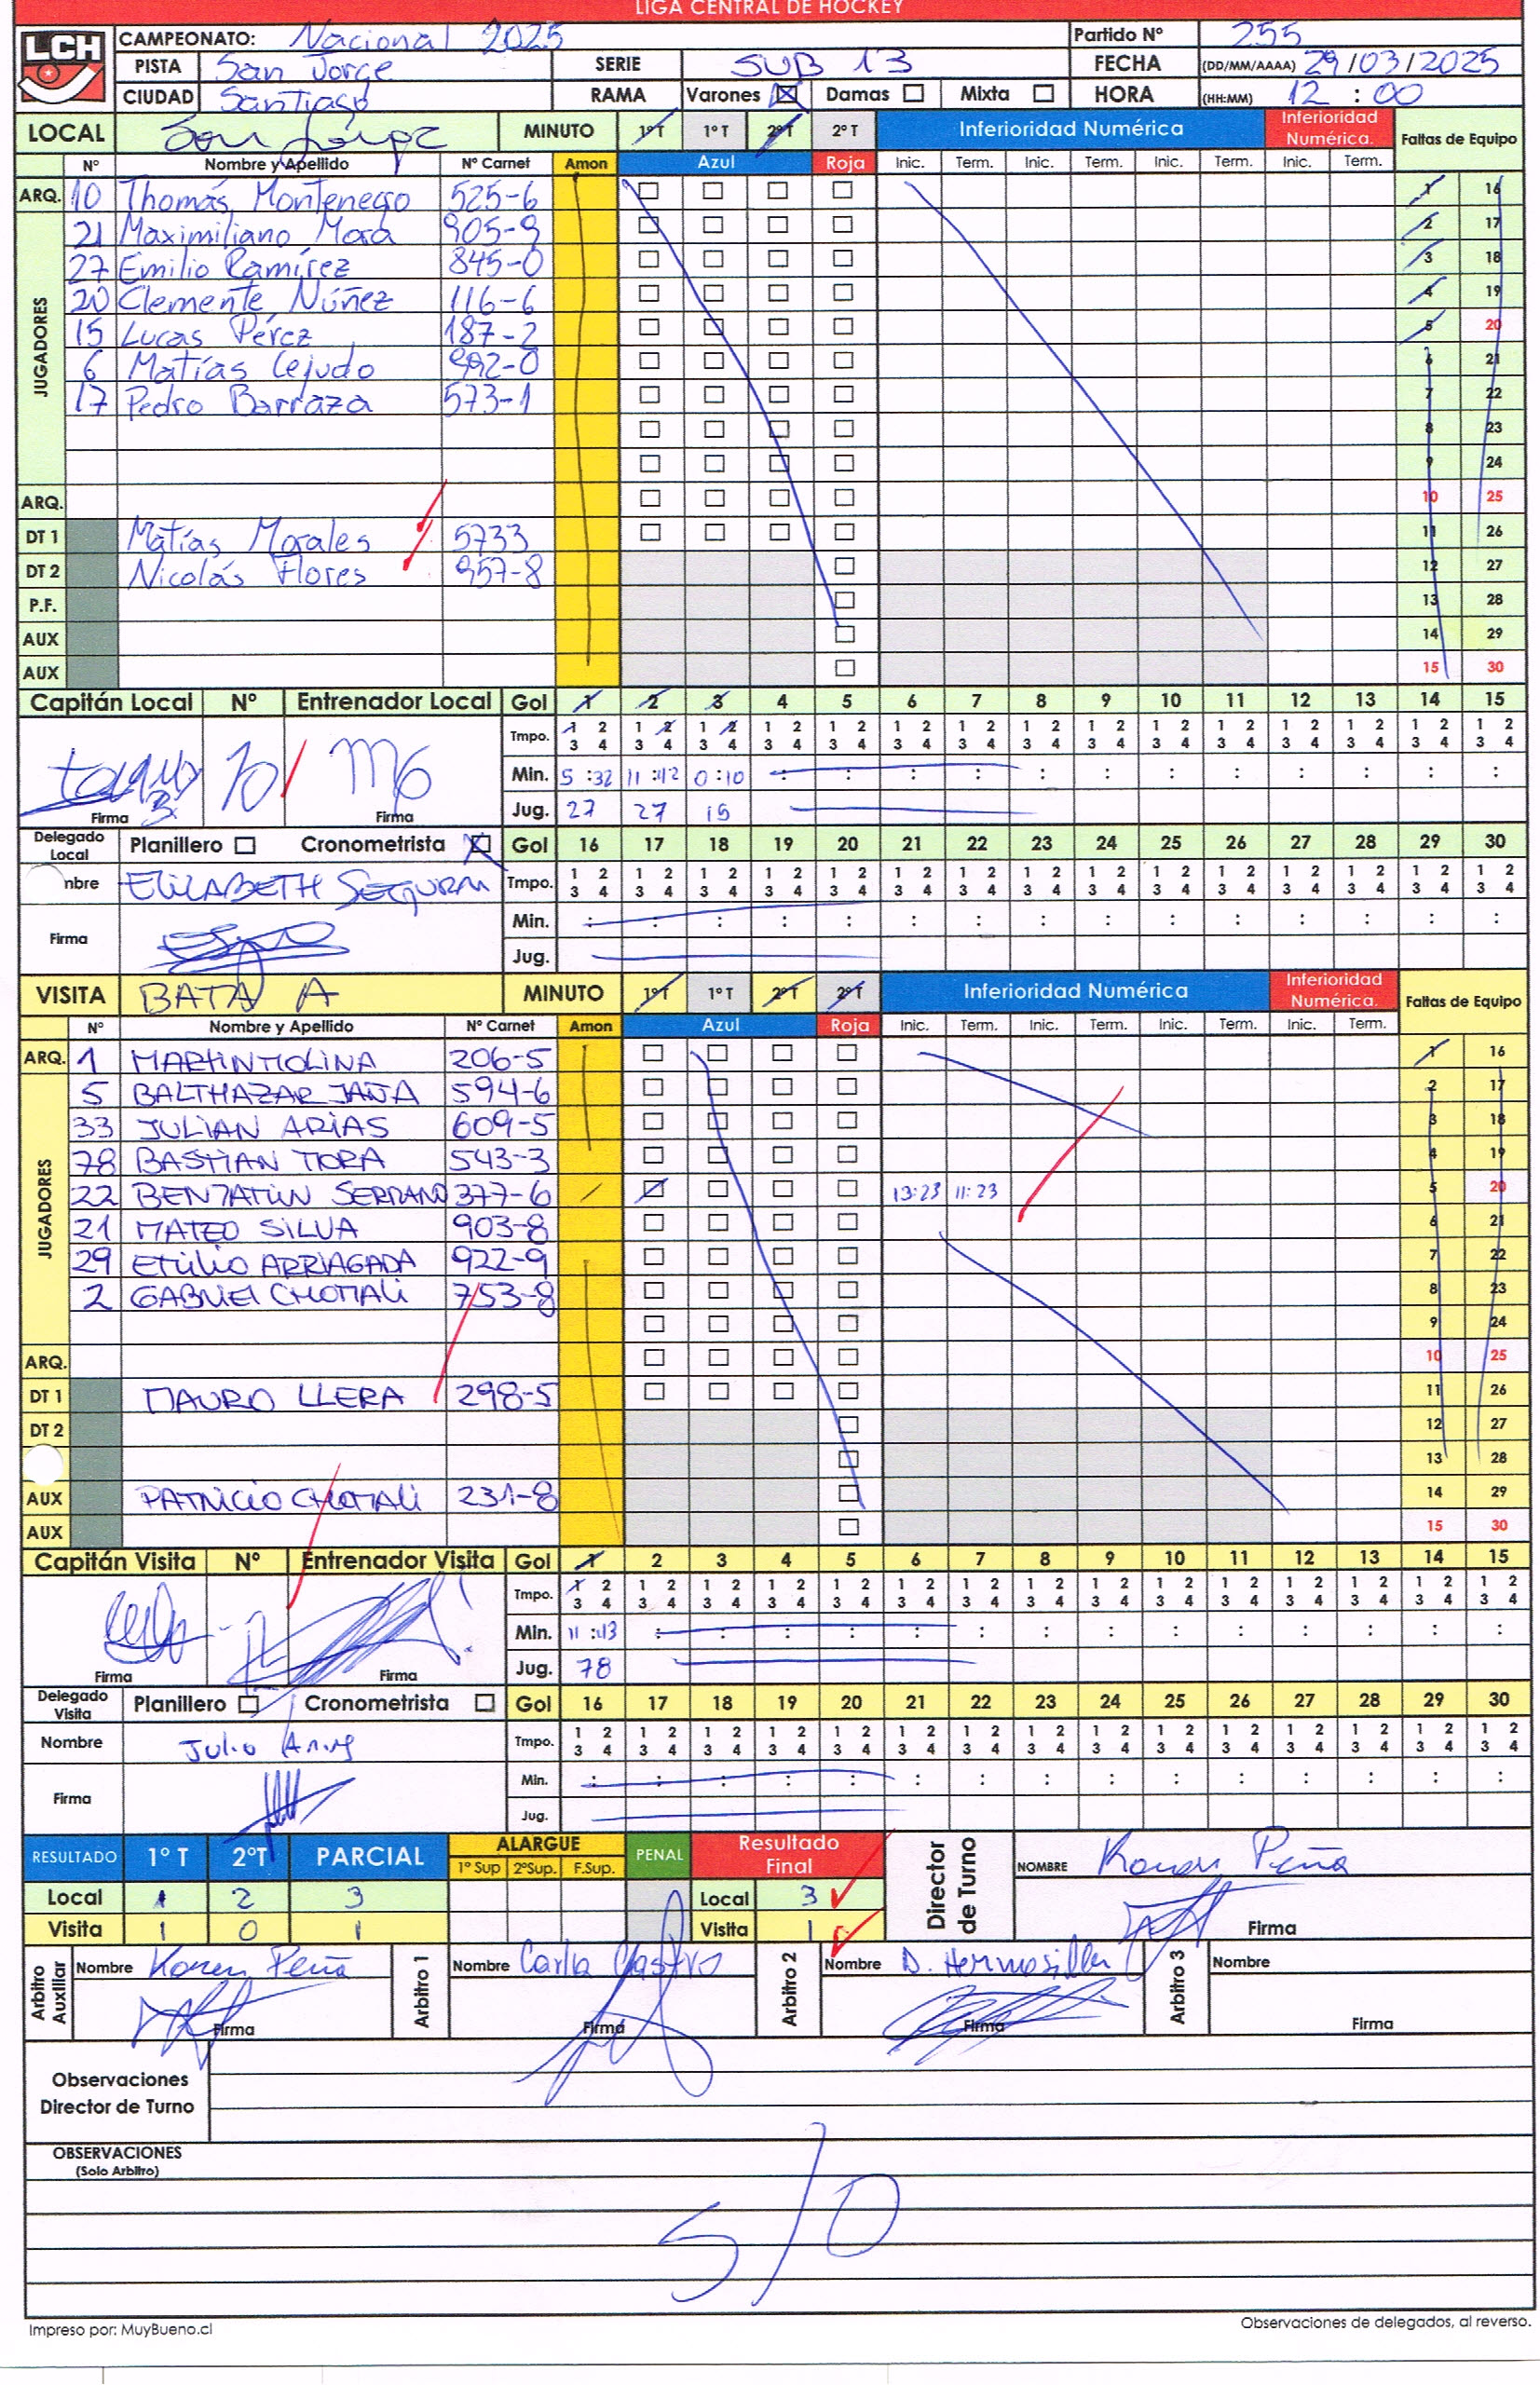 LIGA CENTRAL DE HOCKEY
LCH CAMPEONATO: Nacional 2025 Partido Nº 255
PISTA San Jorge SERIE SUB 13 FECHA (DD/MM/AAAA) 29/03/2025
CIUDAD Santiago RAMA Varones Damas Mixta HORA (HH:MM) 12 : 00
LOCAL San Jorge MINUTO 1º T 1º T 2º T 2º T Inferioridad Numérica Inferioridad Numérica. Faltas de Equipo
Nº Nombre y Apellido Nº Carnet Amon Azul Roja Inic. Term. Inic. Term. Inic. Term. Inic. Term.
ARQ. 10 Thomás Montenegro 525-6 1 16
JUGADORES
21 Maximiliano Mora 905-9 2 17
27 Emilio Ramírez 845-0 3 18
20 Clemente Núñez 116-6 4 19
15 Lucas Pérez 187-2 5 20
6 Matías Cejudo 992-0 6 21
17 Pedro Barraza 573-1 7 22
8 23
9 24
ARQ. 10 25
DT 1 Matías Morales 5733 11 26
DT 2 Nicolás Flores 957-8 12 27
P.F. 13 28
AUX 14 29
AUX 15 30
Capitán Local Nº Entrenador Local Gol 1 2 3 4 5 6 7 8 9 10 11 12 13 14 15
Tmpo. 1 2 1 2 1 2 1 2 1 2 1 2 1 2 1 2 1 2 1 2 1 2 1 2 1 2 1 2 1 2
3 4 3 4 3 4 3 4 3 4 3 4 3 4 3 4 3 4 3 4 3 4 3 4 3 4 3 4 3 4
10 Min. 5 :32 11 :42 0 :10 : : : : : : : : : : : :
Firma Firma Jug. 27 27 15
Delegado Local Planillero Cronometrista Gol 16 17 18 19 20 21 22 23 24 25 26 27 28 29 30
nbre ELIZABETH Tmpo. 1 2 1 2 1 2 1 2 1 2 1 2 1 2 1 2 1 2 1 2 1 2 1 2 1 2 1 2 1 2
3 4 3 4 3 4 3 4 3 4 3 4 3 4 3 4 3 4 3 4 3 4 3 4 3 4 3 4 3 4
Firma Min. : : : : : : : : : : : : : : :
Jug.
VISITA BATA A MINUTO 1º T 1º T 2º T 2º T Inferioridad Numérica Inferioridad Numérica. Faltas de Equipo
Nº Nombre y Apellido Nº Carnet Amon Azul Roja Inic. Term. Inic. Term. Inic. Term. Inic. Term.
ARQ. 1 MARTIN MOLINA 206-5 1 16
JUGADORES
5 BALTHAZAR JAÑA 594-6 2 17
33 JULIAN ARIAS 609-5 3 18
78 BASTIAN MORA 543-3 4 19
22 BENJAMIN SERRANO 377-6 13:23 11:23 5 20
21 MATEO SILVA 903-8 6 21
29 EMILIO ARRIAGADA 922-9 7 22
2 GABRIEL CHOMALI 753-8 8 23
9 24
ARQ. 10 25
DT 1 MAURO LLERA 298-5 11 26
DT 2 12 27
13 28
AUX PATRICIO CHOMALI 231-8 14 29
AUX 15 30
Capitán Visita Nº Entrenador Visita Gol 1 2 3 4 5 6 7 8 9 10 11 12 13 14 15
Tmpo. 1 2 1 2 1 2 1 2 1 2 1 2 1 2 1 2 1 2 1 2 1 2 1 2 1 2 1 2 1 2
3 4 3 4 3 4 3 4 3 4 3 4 3 4 3 4 3 4 3 4 3 4 3 4 3 4 3 4 3 4
Min. 11 :43 : : : : : : : : : : : : : :
Firma Firma Jug. 78
Delegado Visita Planillero Cronometrista Gol 16 17 18 19 20 21 22 23 24 25 26 27 28 29 30
Nombre Julio Tmpo. 1 2 1 2 1 2 1 2 1 2 1 2 1 2 1 2 1 2 1 2 1 2 1 2 1 2 1 2 1 2
3 4 3 4 3 4 3 4 3 4 3 4 3 4 3 4 3 4 3 4 3 4 3 4 3 4 3 4 3 4
Firma Min. : : : : : : : : : : : : : : :
Jug.
RESULTADO 1º T 2ºT PARCIAL ALARGUE 1º Sup 2ºSup. F.Sup. PENAL Resultado Final Director de Turno NOMBRE Karen Peña
Local 1 2 3 Local 3
Visita 1 0 1 Visita 1 Firma
Arbitro Auxiliar Nombre Karen Peña Arbitro 1 Nombre Carla Castro Arbitro 2 Nombre D. Hermosilla Arbitro 3 Nombre
Firma Firma Firma Firma
Observaciones
Director de Turno
OBSERVACIONES
(Solo Arbitro)
S/O
Impreso por: MuyBueno.cl Observaciones de delegados, al reverso.